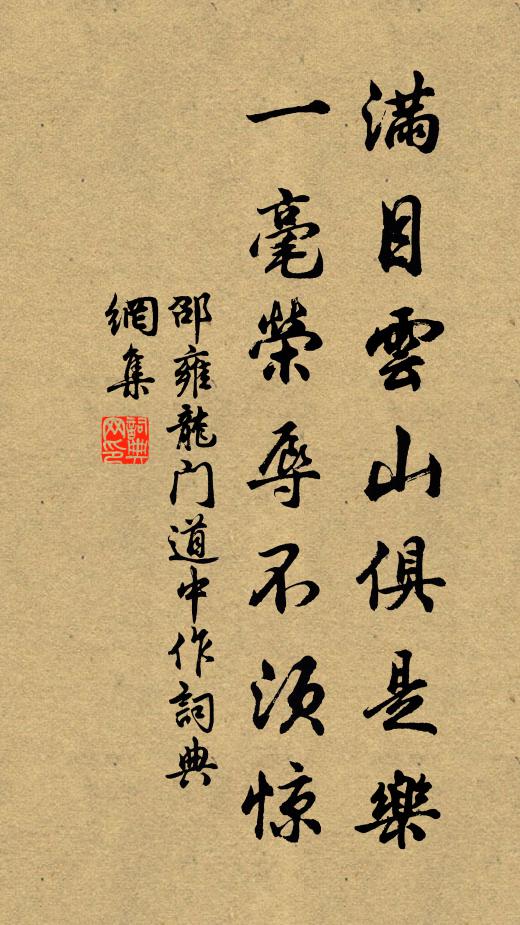 满目雲山俱是樂
一毫榮辱不须惊
邵雍龍门道中作詞典
網集
詞典
网印